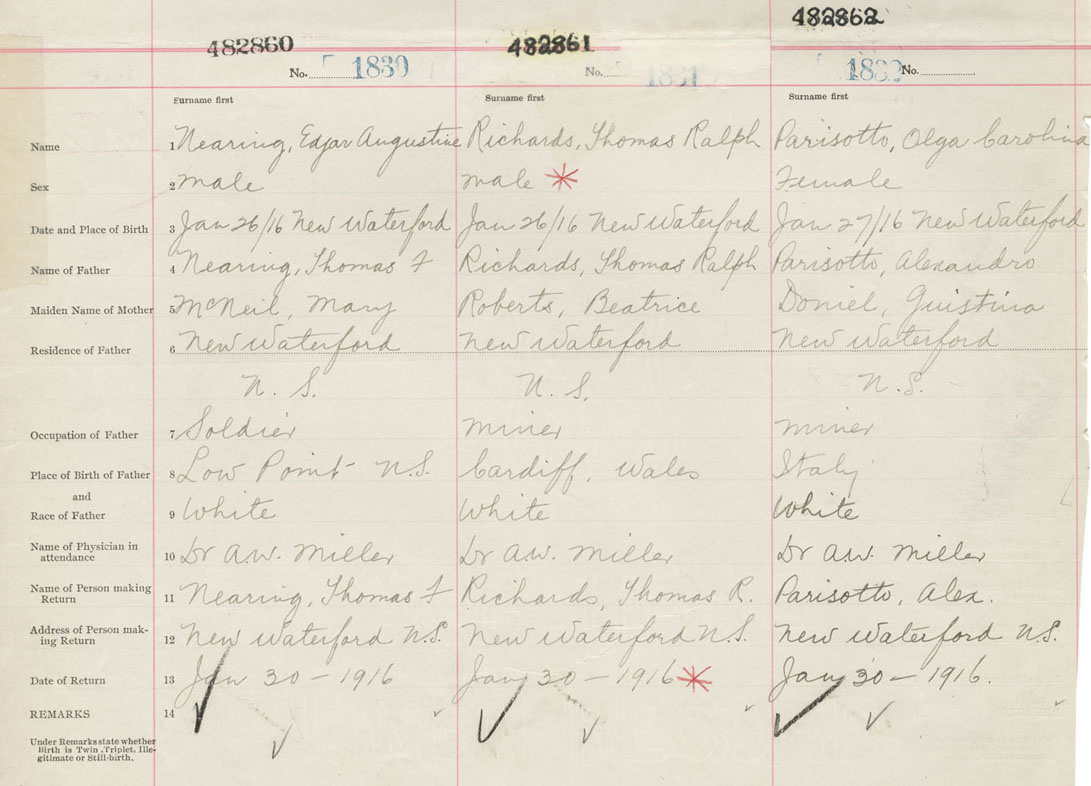 482860 482861 482862
No. 1830 No. 1831 1832 No.
Surname first Surname first Surname first
Name 1 Nearing, Edgar Augustine Richards, Thomas Ralph Parisotto, Olga Carolina
Sex 2 male male * Female
Date and Place of Birth 3 Jan 26/16 New Waterford Jan 26/16 New Waterford Jan 27/16 New Waterford
Name of Father 4 Nearing, Thomas F Richards, Thomas Ralph Parisotto, Alexandro
Maiden Name of Mother 5 McNeil, Mary Roberts, Beatrice Doniel, Guistina
Residence of Father 6 New Waterford New Waterford New Waterford
N. S. N. S. N. S.
Occupation of Father 7 Soldier miner miner
Place of Birth of Father 8 Low Point N.S. Cardiff, Wales Italy
and
Race of Father 9 White White White
Name of Physician in attendance 10 Dr A.W. Miller Dr A.W. Miller Dr A.W. Miller
Name of Person making Return 11 Nearing, Thomas F Richards, Thomas R. Parisotto, Alex.
Address of Person mak-ing Return 12 New Waterford N.S. New Waterford N.S. New Waterford N.S.
Date of Return 13 Jan 30 – 1916 Jan 30 – 1916 * Jan 30 – 1916.
REMARKS 14
Under Remarks state whether
Birth is Twin, Triplet, Ille-
gitimate or Still-birth.